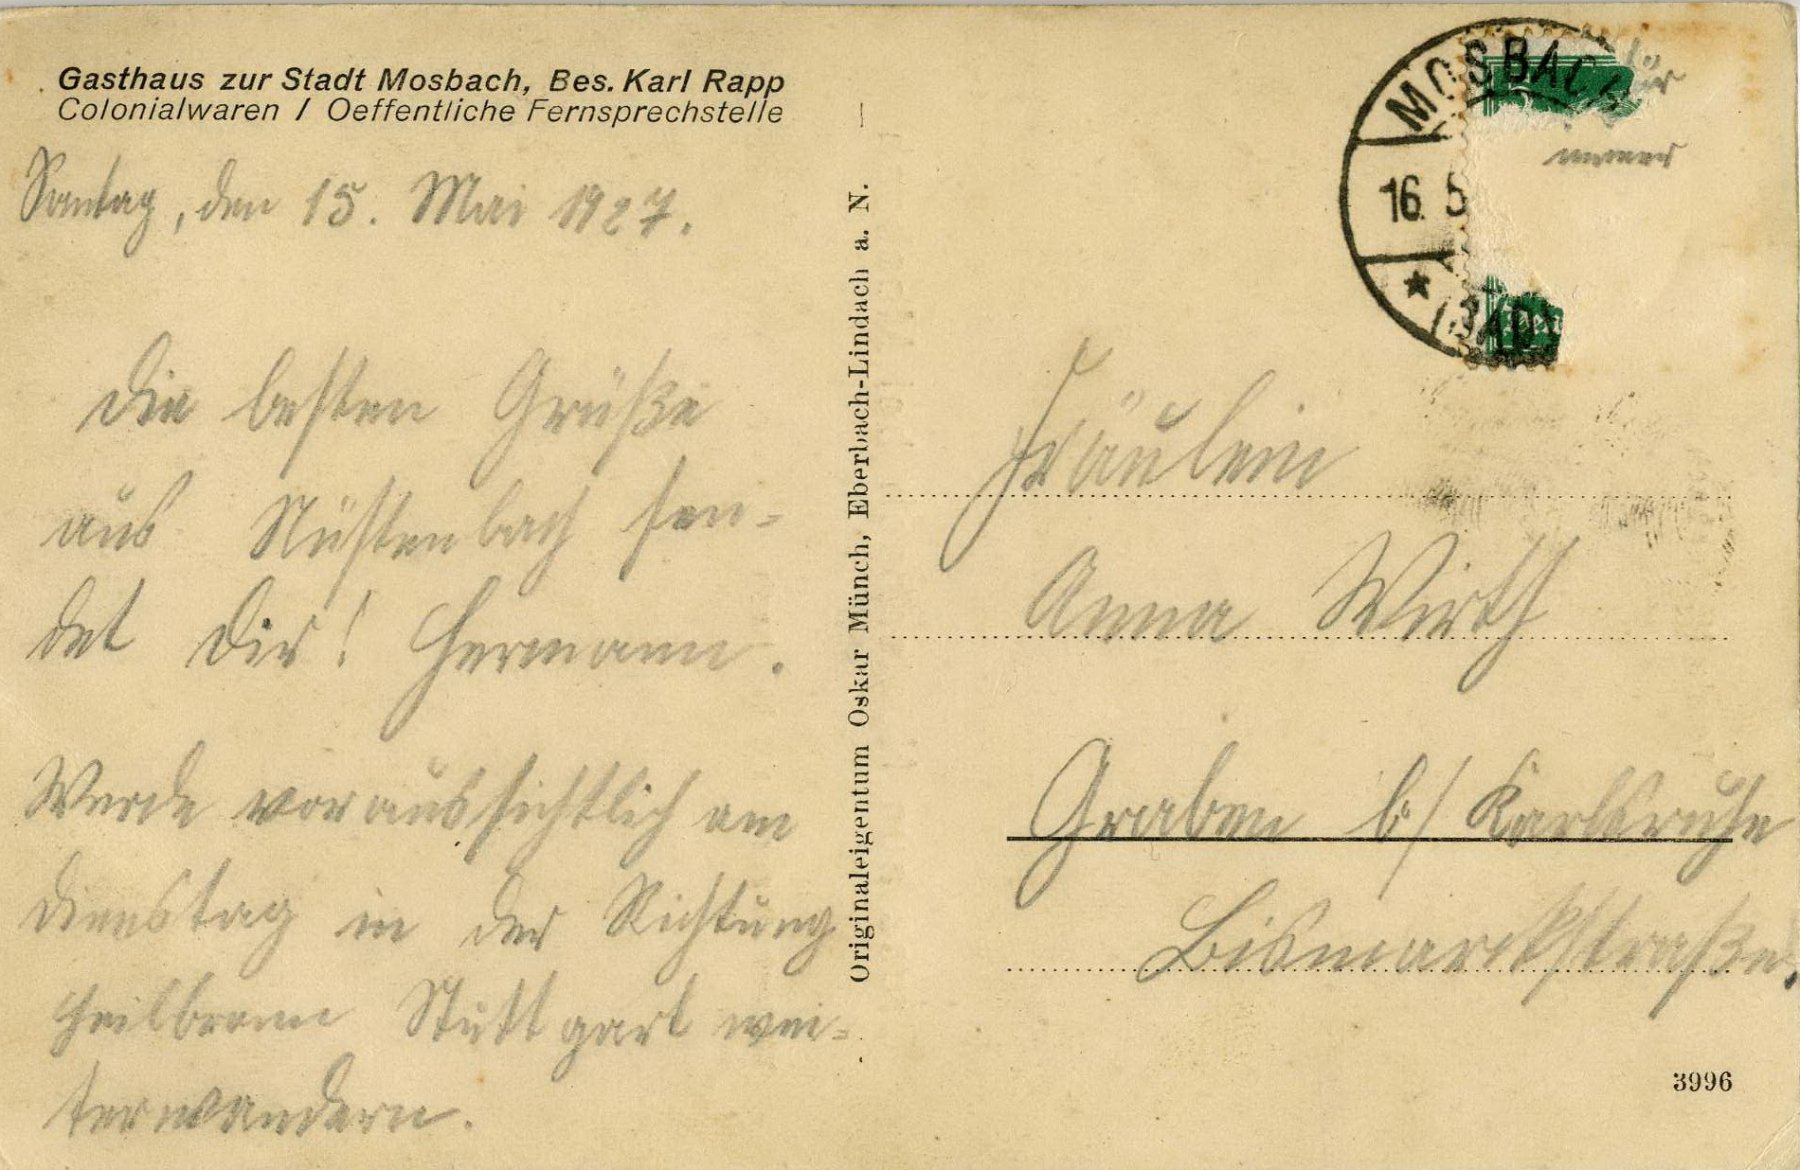 Gasthaus zur Stadt Mosbach, Bes. Karl Rapp
Colonialwaren / Oeffentliche Fernsprechstelle
Sonntag, den 15. Mai 1927.
Die besten Grüße
aus Nüstenbach sen-
det Dir! Hermann.
Werde voraussichtlich am
Dienstag in der Richtung
Heilbronn Stuttgart wei-
terwandern.
Originaleigentum Oskar Münch, Eberbach-Lindach a. N.
MOSBACH
16. 5
(BAD
Fräulein
Anna Wirth
Graben b/ Karlsruhe
Bismarckstraße.
3996